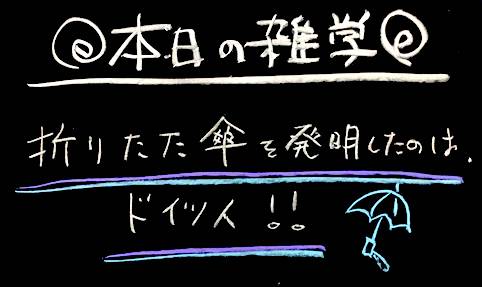 @本日の雑学@
折りたた傘を発明したのは、
ドイツ人!!